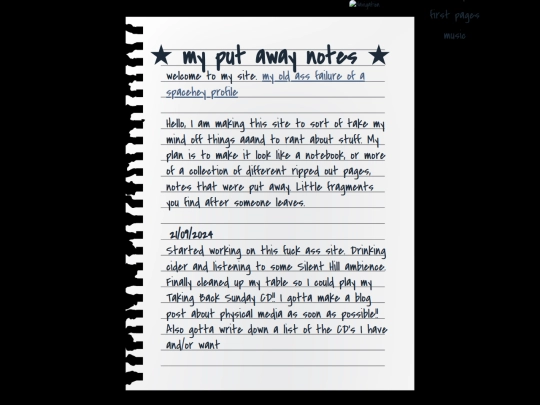 first pages
music
★ my put away notes ★
welcome to my site. my old ass failure of a
spacehey profile
Hello, I am making this site to sort of take my
mind off things aaand to rant about stuff. My
plan is to make it look like a notebook, or more
of a collection of different ripped out pages,
notes that were put away. Little fragments
you find after someone leaves.
21/09/2024
Started working on this fuck ass site. Drinking
cider and listening to some Silent Hill ambience.
Finally cleaned up my table so I could play my
Taking Back Sunday CD!! I gotta make a blog
post about physical media as soon as possible!!
Also gotta write down a list of the CD's I have
and/or want